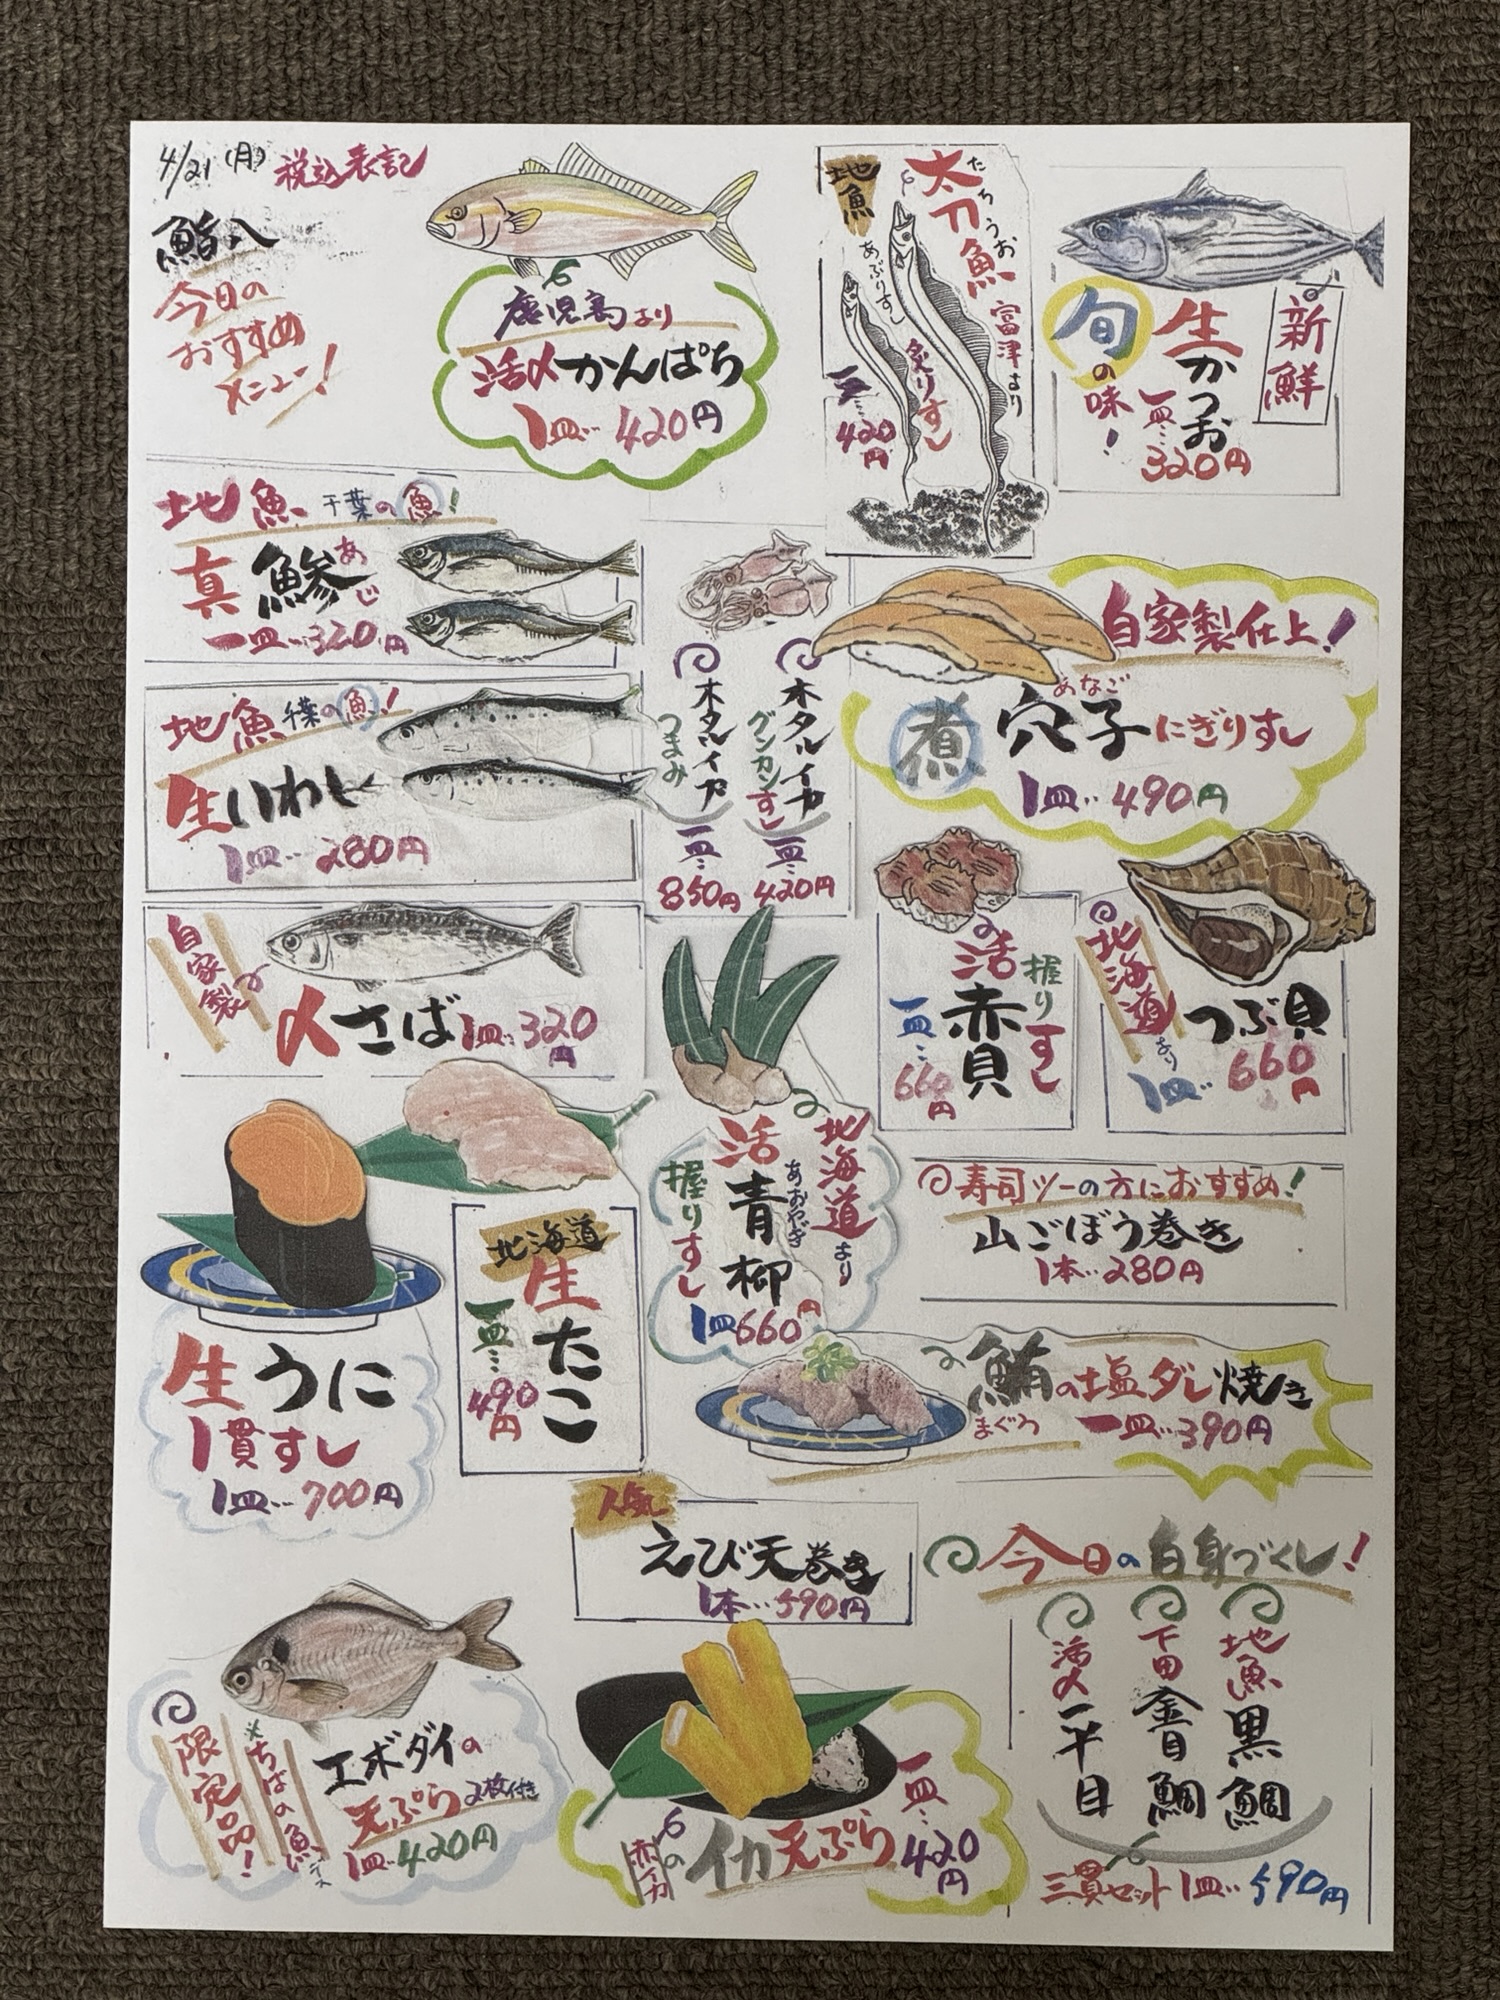 4/21(月) 税込表記
鮨八
今日の
おすすめ
メニュー!
鹿児島より
活〆かんぱち
1皿…420円
地魚
太刀魚
たちうお
富津より
あぶりすし
炙りすし
一皿…420円
新鮮
旬の味!
生かつお
一皿…320円
地魚 千葉の魚!
真鯵
あじ
一皿…320円
地魚 千葉の魚!
生いわし
1皿…280円
ホタルイカ
グンカンすし
一皿…420円
ホタルイカ
つまみ
一皿…850円
自家製仕上!
あなご
煮穴子にぎりすし
1皿…490円
自家製
〆さば 1皿…320円
活赤貝
握りすし
一皿…660円
北海道より
つぶ貝
1皿…660円
北海道より
活青柳
あおやぎ
握りすし
1皿660円
寿司ツーの方におすすめ!
山ごぼう巻き
1本…280円
生うに
1貫すし
1皿…700円
北海道
生たこ
一皿…490円
鮪の塩ダレ焼き
まぐろ 一皿…390円
人気
えび天巻き
1本…590円
今日の白身づくし!
地魚黒鯛
下田金目鯛
活〆平目
三貫セット1皿…590円
限定品!
ちばの魚です
エボダイの
天ぷら2枚付き
1皿…420円
赤イカの
イカ天ぷら
一皿…420円